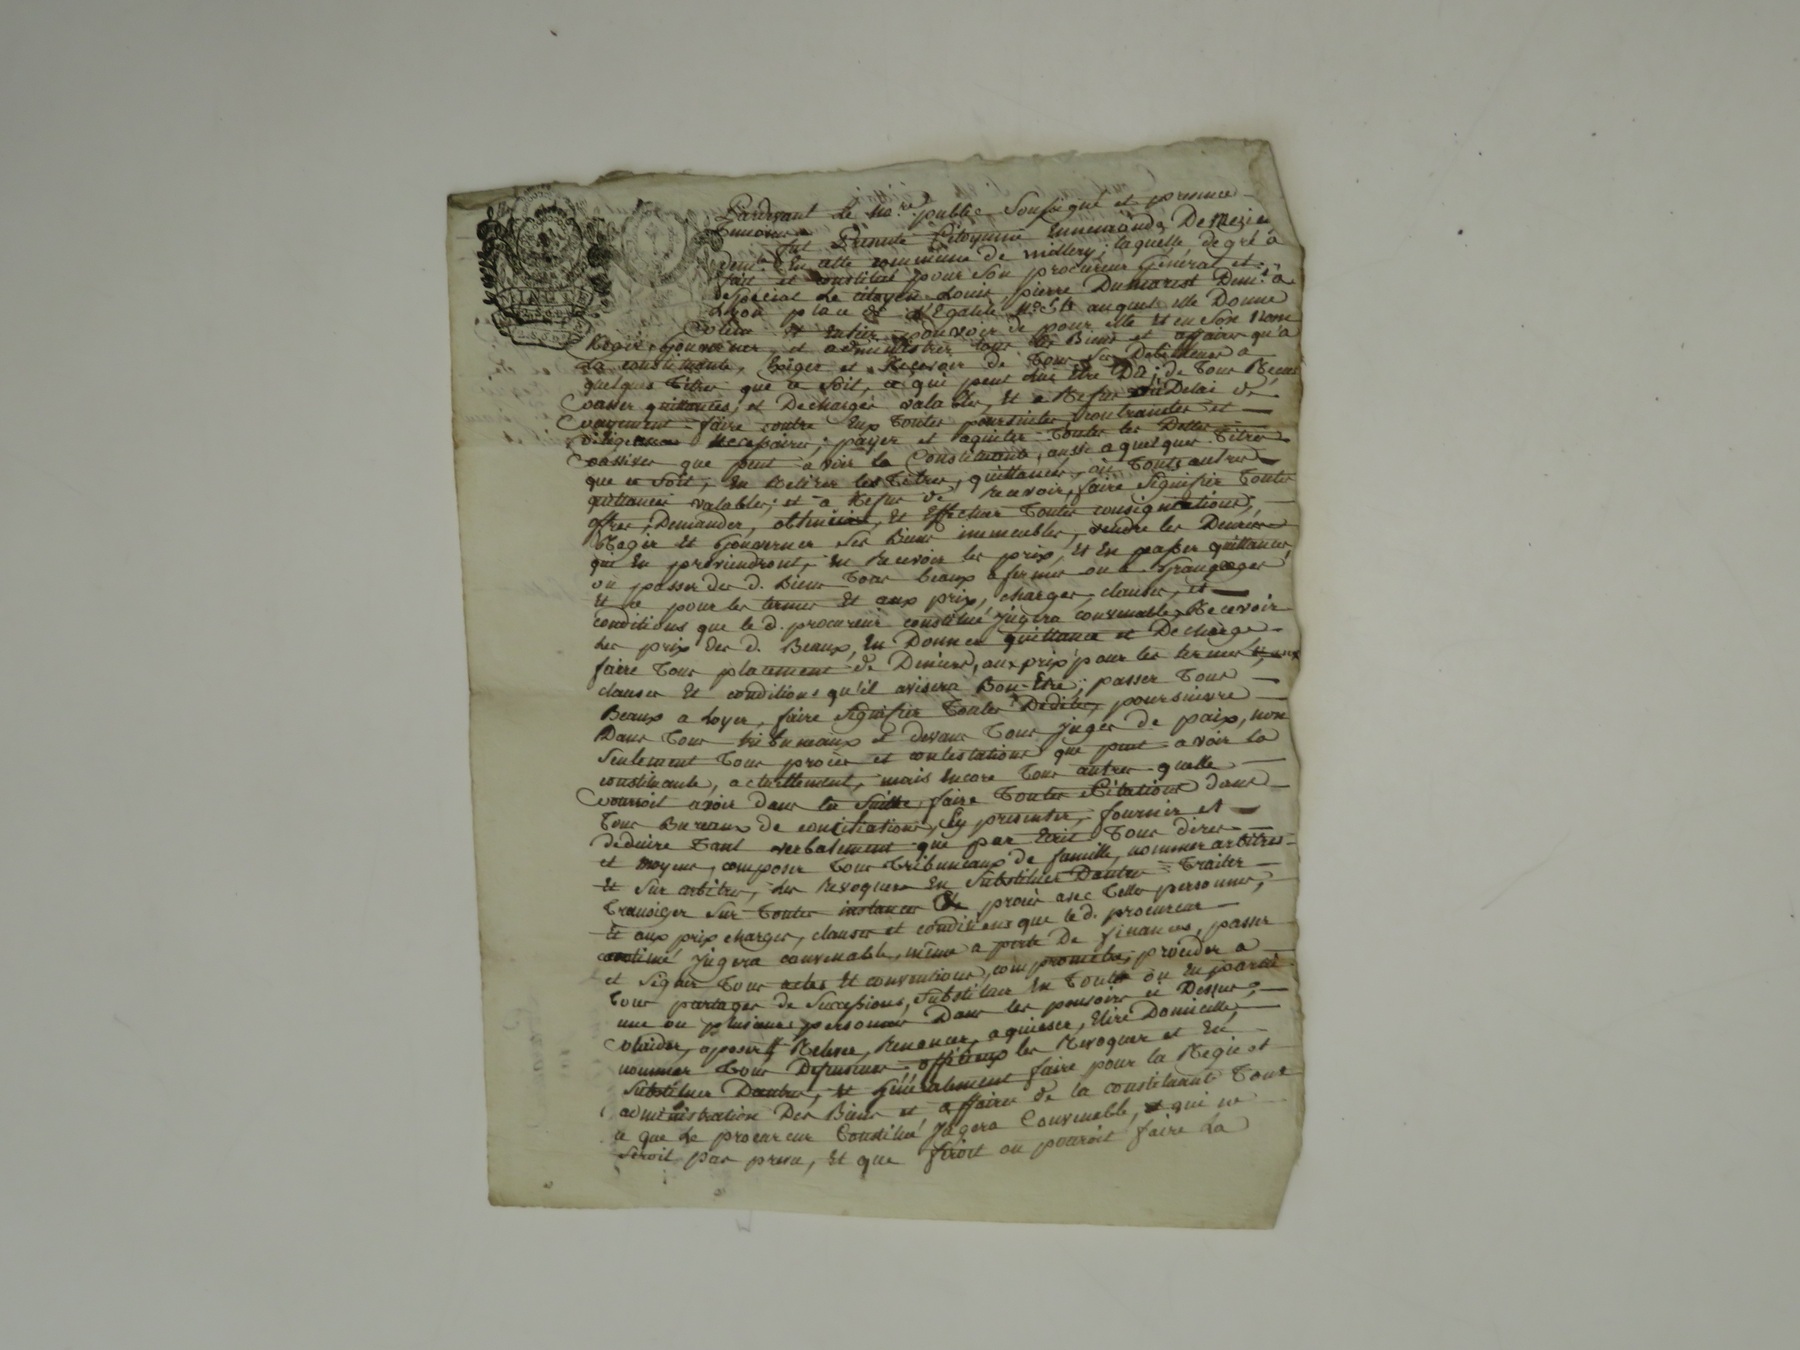 Pardevant Le no.re public Soussigné et presence
fut presente Citoyenne Ennemonde De Mezieu
dem.te En cette commune de millery, laquelle de gré a
fait et constitué pour Son procureur Général et
Spécial Le citoyen Louis pierre Dumarest Dem.t à
Lyon place de l'Egalité, N.o auquel elle Donne
plein et Entier pouvoir de pour elle et en Son Nom
Regir Gouverner, et administrer tous les Biens et affaires qu'a
La constituante, Exiger et Recevoir de Tous Ses Debiteurs a
quelques Titres que ce Soit, ce qui peut lui Etre Dû; de Tous Recus
passer quittances, et Decharges valables, Et a Refus ou Delai de
payement faire contre Eux Toutes poursuites, contraintes et
diligences necessaires, payer et aquiter Toutes les Dettes
passives que peut avoir la Constituante, aussi a quelques Titres
que ce Soit, En Retirer les Titres, quittances, où Touts autres
quittances valables; et à Refus de recevoir, faire Signifier Toutes
offres, Demander, obtenir, Et Effectuer Toutes consignations;
Regir Et Gouverner Ses Biens immeubles, vendre les Denrées
qui En proviendront, En Recevoir les prix, Et En passer quittances,
ou passer des d. Biens Tous beaux a fermes ou a Grangeages
Et ce pour les termes Et aux prix, charges, clauses, et
conditions que le d. procureur constitué Jugera convenable, Recevoir
Les prix des d. Beaux, En Donner quittance et Decharge
faire Tous placement de Deniers, aux prix pour les termes
clauses Et conditions qu'il avisera Bon-Etre; passer Tous
Beaux a Loyer, faire Signifier Toutes Dédites, poursuivre
Dans Tous tribuneaux et devant Tous Juges de paix, non
Seulement Tous procès et contestations que peut avoir la
constituante, actuellement, mais Encore Tous autres quelle
pourroit avoir dans la Suitte, faire Toutes Citations dans
Tous Bureaux de conciliations, S'y presenter, fournir et
deduire Tant verbalement que par Ecrit Tous dires
et moyens, composer Tous Tribuneaux de famille, nommer arbitres
Et Sur arbitres, Les Revoquer En Substituer Dautres Traiter
Transiger Sur Toutes instances Et procès avec Telles personnes,
Et aux prix charges, clauses et conditions que le d. procureur
constitué Jugera convenable, même a perte De finances, passer
et Signer Tous actes Et conventions, compromettre, procéder a
Tous partages de Successions, Substituer En Tout où En partie
une ou plusieurs personnes Dans les pouvoirs ci Dessus,
plaider, oposer Relever, Renoncer, aquiescer, Elire Domicille,
nommer Tous Defenseurs officieux les Revoquer et En
Substituer Dautres, Et Généralement faire pour la Regie et
administration Des Biens et affaires de la constituante Tous
ce que Le procureur Constitué Jugera Convenable, et qui ne
Seroit pas prevu, Et que feroit ou pouroit faire La